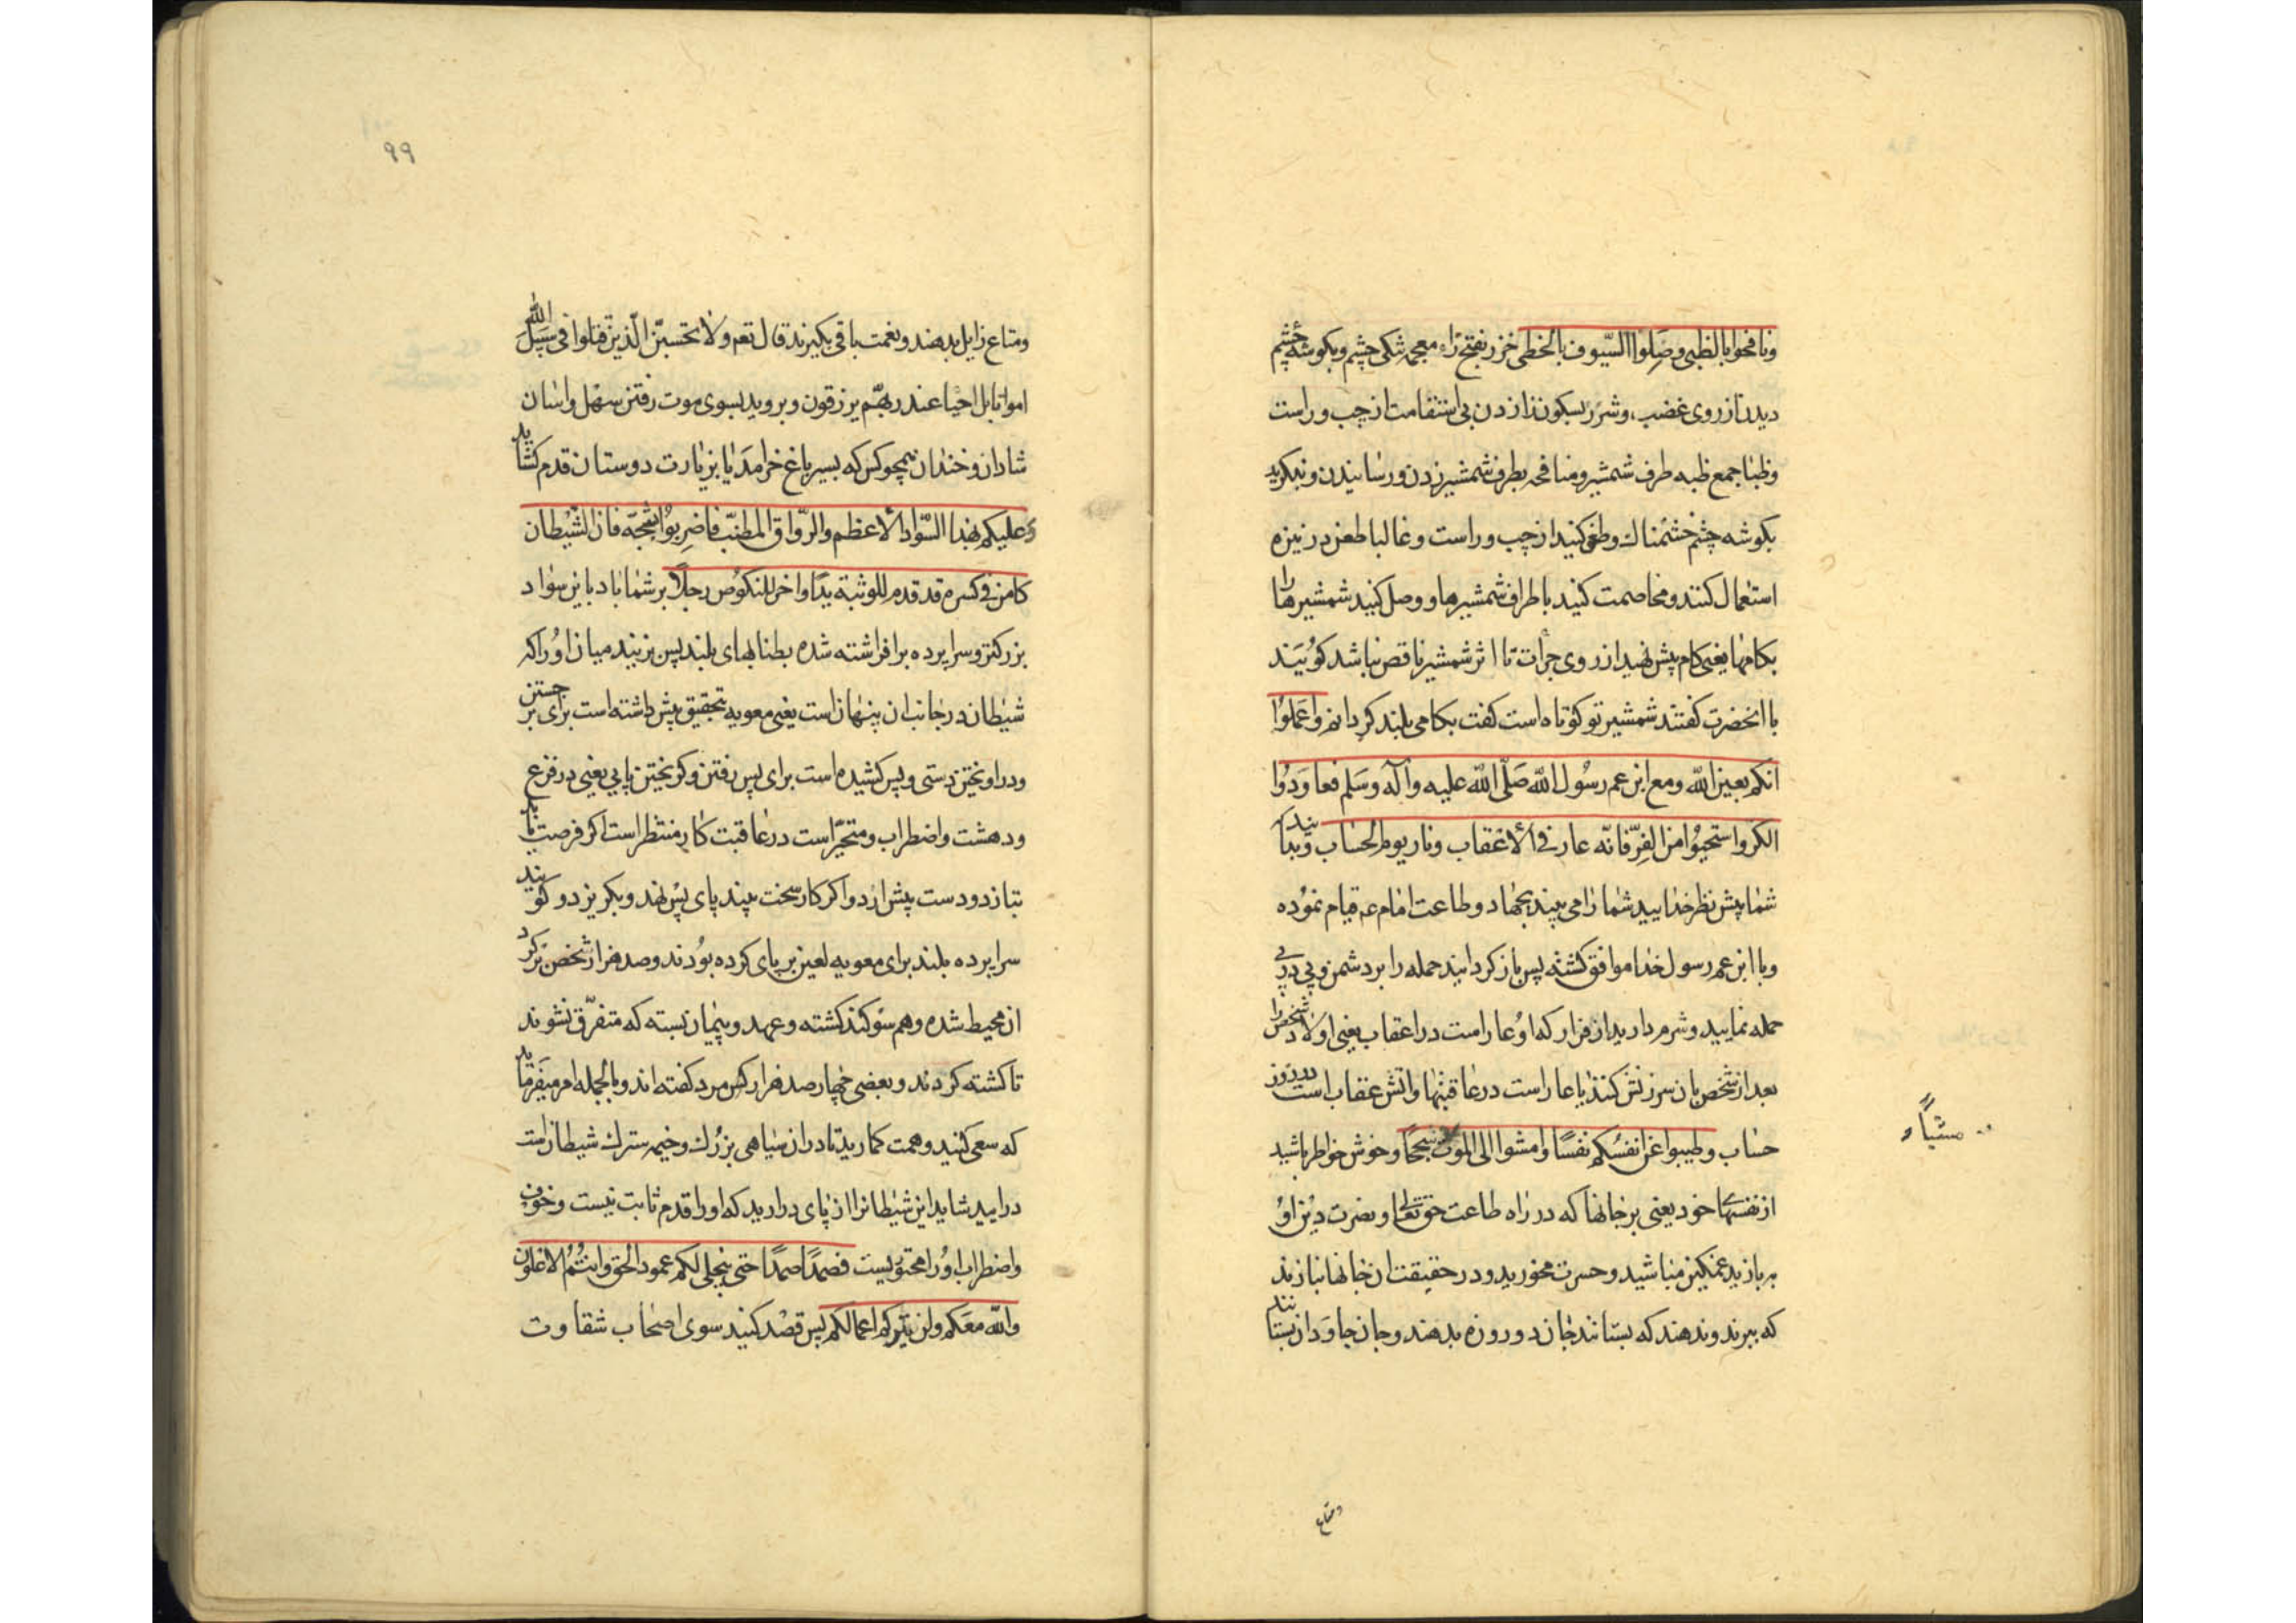 ونافحوا بالظبی وصلوا السیوف بالخطی خزر بفتح زاء معجمه تنکی چشم و بکوشهٔ چشم
دیدن از روی غضب، وشزر بسکون زا زدن بی استقامت از چپ و راست
وظبا جمع ظبه طرف شمشیر و منافحه بطرف شمشیر زدن و رسانیدن و بنکرید
بکوشه چشم خشمناك وطعن کنید از چپ و راست و غالبا طعن در نیزه
استعمال کنند و مخاصمت کنید باطراف شمشیرها و وصل کنید شمشیرها را
بکامها یعنی کام پیش نهید از روی جرأت تا اثر شمشیر ناقص نباشد کویند
باانحضرت کفتند شمشیر تو کوتاه است کفت بکامی بلند کردانم واعملوا
انکم بعین الله ومع ابن عم رسول الله صلی الله علیه وآله وسلم فعاودوا
الکر واستحیوا من الفر فانه عار فی الأعقاب ونار یوم الحساب و بدانید
شما پیش نظر خدایید شما را می بیند بجهاد و طاعت امام عم قیام نموده
وبا ابن عم رسول خدا موافق کشته پس باز کردانید حمله را بر دشمن و پی در پی
حمله نمایید وشرم دارید از فرار که او عار است در اعقاب یعنی اولاد شخص را
بعد از شخص بان سرزنش کنند یا عار است در عاقبتها واتش عقاب است در روز
حساب وطیبوا عن انفسکم نفسًا وامشوا الی الموت سجحًا وخوش خواطر باشید
مشیًا
از نفسها خود یعنی بر جانها که در راه طاعت حق تعالی و نصرت دین او
بربازید غمکین مباشید وحسرت مخورید و در حقیقت ان جانها نبازند
که ببرند وندهند که بستانند جان دو روزه بدهند وجان جاودان بستانند
ومتاع
۹۹
ومتاع زایل بدهند ونعمت باقی بکیرند قال تعم ولا تحسبن الذین قتلوا فی سبیل الله
امواتا بل احیا عند ربهم یرزقون وبروید بسوی موت رفتن سهل واسان
شادان وخندان همچو کس که بسیر باغ خرامد یا بزیارت دوستان قدم کشاید
وعلیکم بهذا السواد الأعظم والرواق المطنب فاضربوا ثبجه فان الشیطان
کامن فی کسره قد قدم للوثبة یدًا واخر للنکوص رجلاً بر شما باد باین سواد
بزرکتر وسراپرده برافراشته شده بطنابهای بلند پس بزنید میان اورا که
شیطان در جانب ان پنهان است یعنی معویه بتحقیق پیش داشته است برای برجستن
ودراویختن دستی و پس کشیده است برای پس رفتن وکریختن پایی یعنی در فزع
ودهشت واضطراب ومتحیر است در عاقبت کار منتظر است اکر فرصت یابد
بتازد ودست پیش ارد واکر کار سخت بیند پای پس نهد وبکریزد وکویند
سراپرده بلند برای معویه لعین بر پای کرده بودند وصد هزار شخص بر کرد
ان محیط شده وهم سوکند کشته وعهد وپیمان بسته که متفرق نشوند
تا کشته کردند وبعضی چهار صد هزار کس مرد کفته اند وبالجمله امر میفرماید
که سعی کنید وهمت کمارید تا در ان سیاهی بزرك وخیمه سترك شیطان است
درایید شاید این شیطانرا از پای درارید که اورا قدم ثابت نیست وخوف
واضطراب اورا محتویست فصمدًا صمدًا حتی ینجلی لکم عمود الحق وانتم الاعلون
والله معکم ولن یترکم اعمالکم پس قصد کنید سوی اصحاب شقاوت